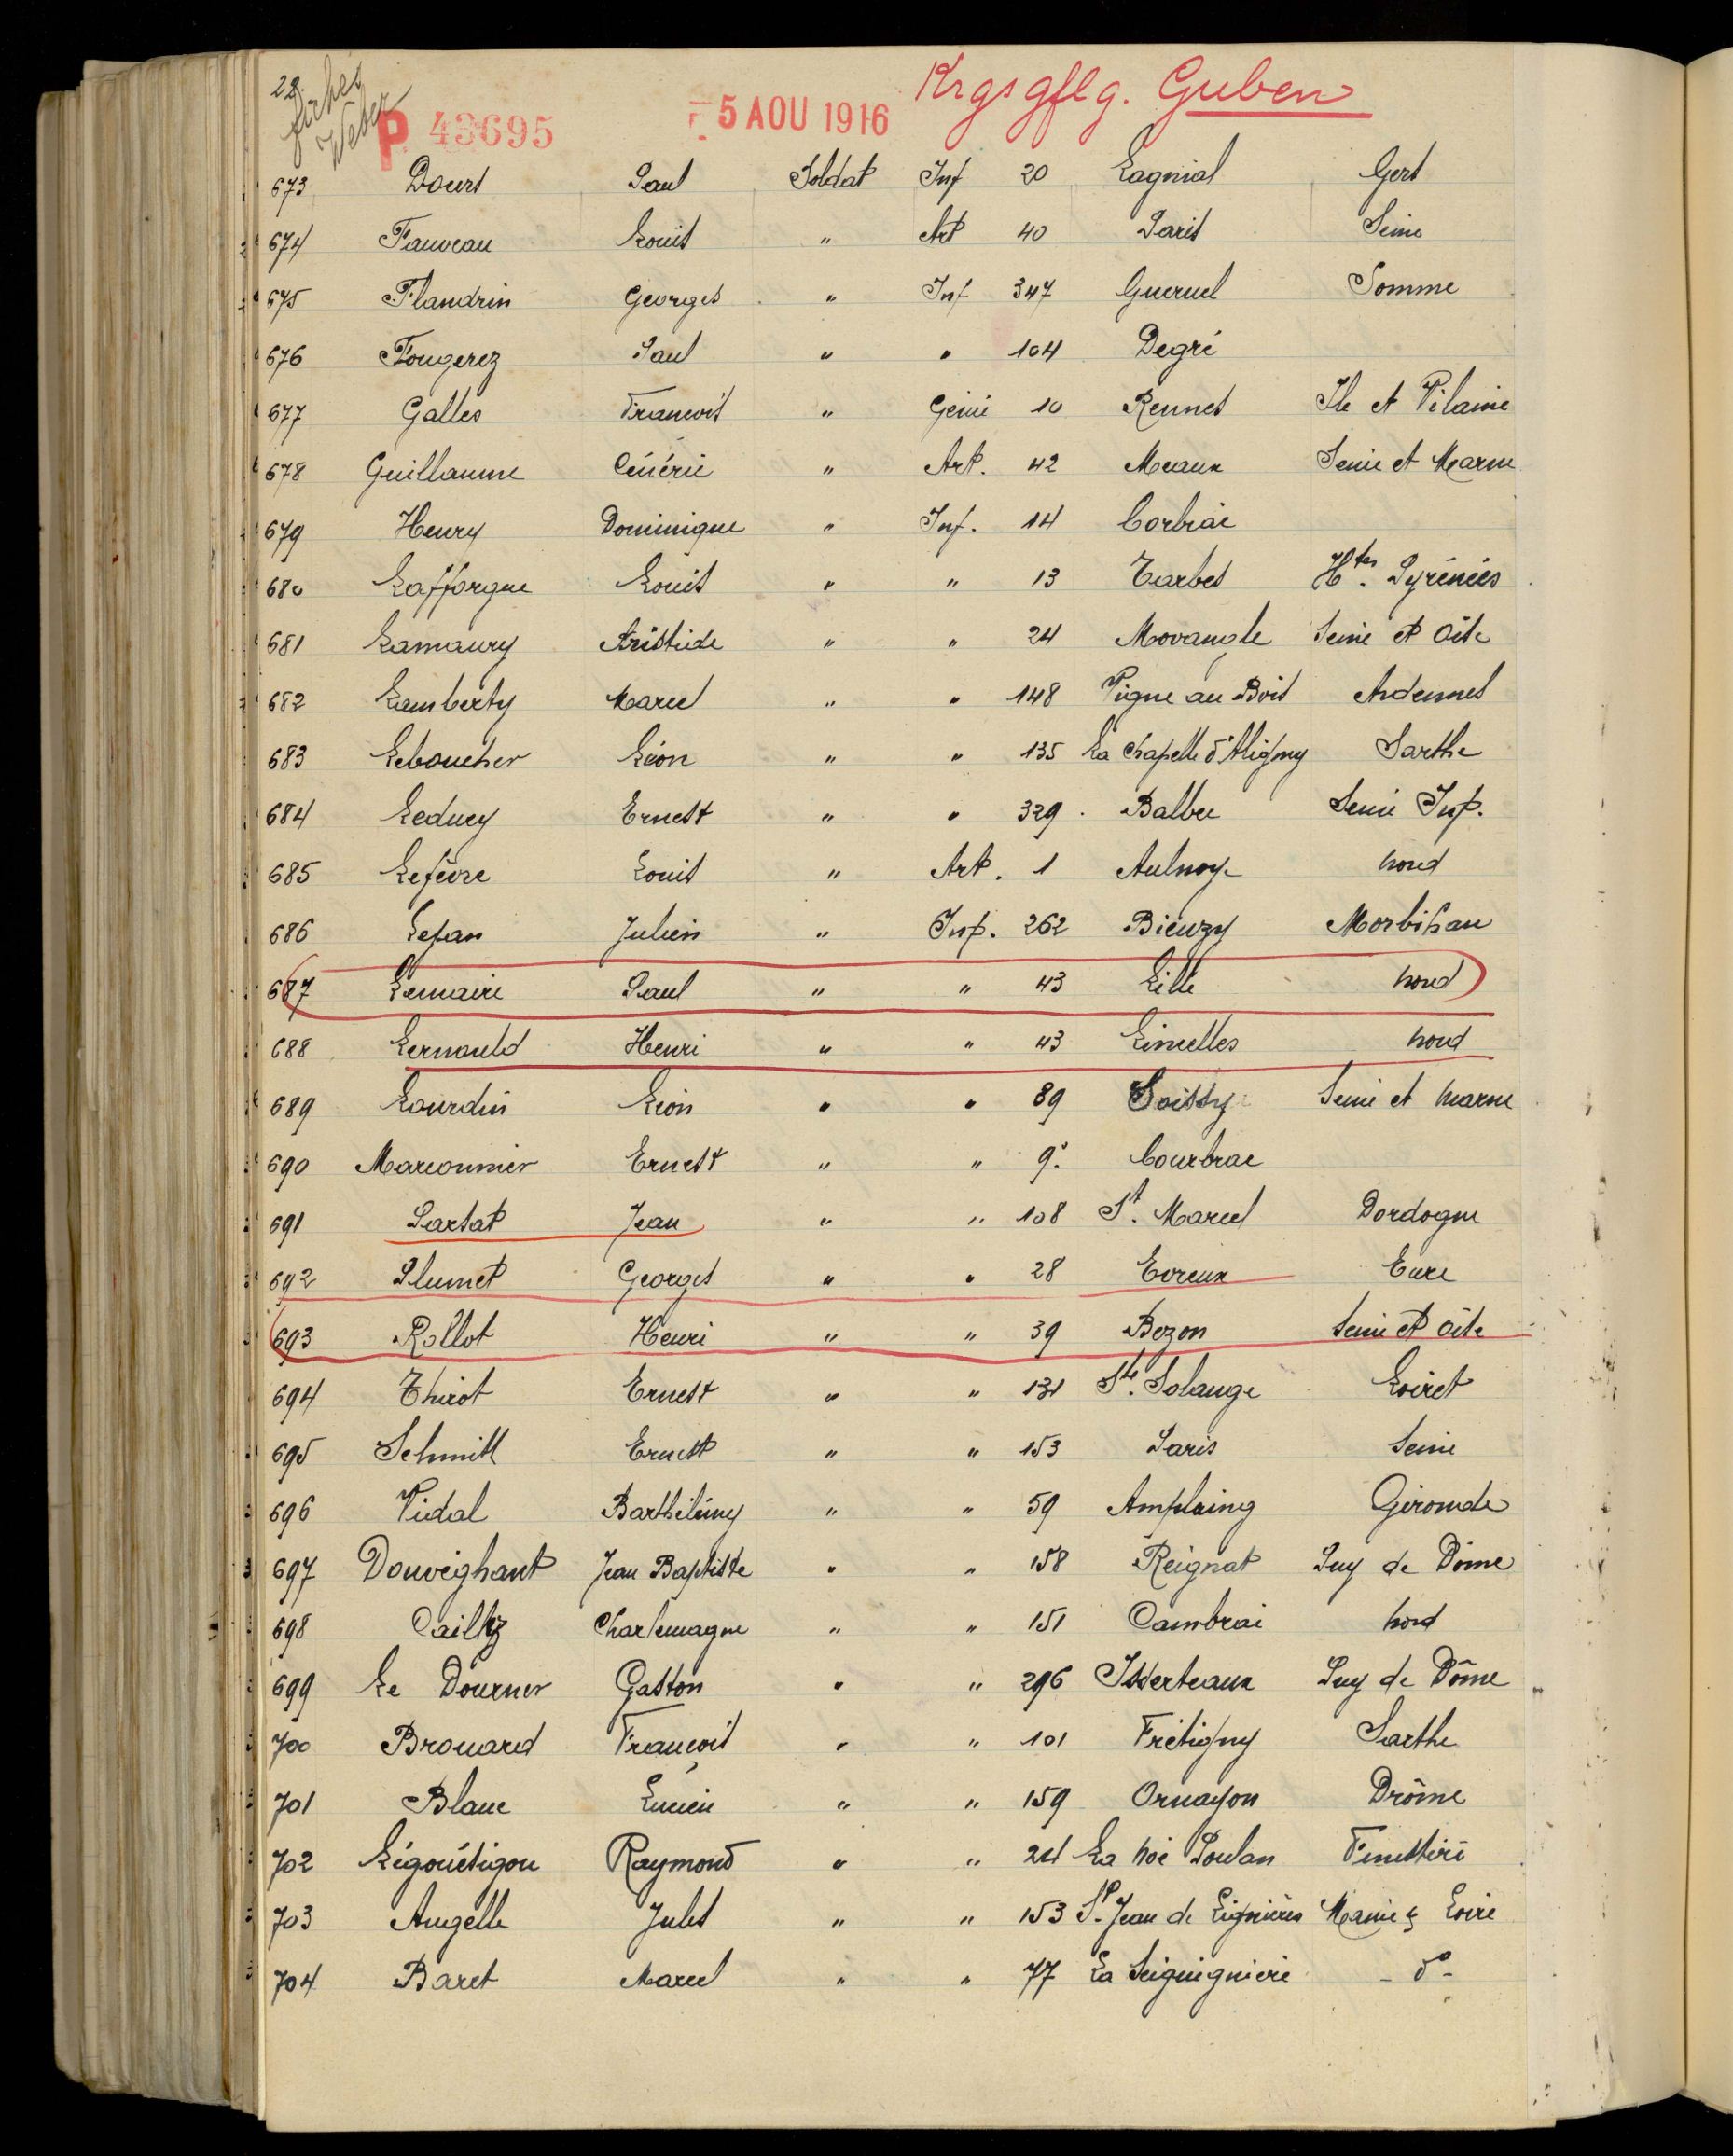 28.
fiches Weber
P 43695
5 AOU 1916
Krgsgflg. Guben
673 Dours Paul Soldat Inf 20 Lagnial Gers
674 Fauveau Louis " Art 40 Paris Seine
675 Flandrin Georges " Inf 347 Gueruel Somme
676 Fougerez Paul " " 104 Degré
677 Galles François " Génie 10 Rennes Ile et Vilaine
678 Guillaume Cénérie " Art. 42 Meaux Seine et Marne
679 Henry Dominique " Inf. 14 Corbiac
680 Lafforgue Louis " " 13 Tarbes Htes. Pyrénées
681 Lamaury Aristide " " 24 Movangle Seine et Oise
682 Lamberty Marcel " " 148 Vigne au Bois Ardennes
683 Leboucher Léon " " 135 La Chapelle d'Aligny Sarthe
684 Leduey Ernest " " 329 Balbec Seine Inf.
685 Lefèvre Louis " Art. 1 Aulnoye Nord
686 Lepan Julien " Inf. 262 Bieuzy Morbihan
687 Lemaire Paul " " 43 Lille Nord
688 Lernould Henri " " 43 Linselles Nord
689 Lourdin Léon " " 89 Soissy Seine et Marne
690 Marconnier Ernest " " 9. Courbiac
691 Partat Jean " " 108 St. Marcel Dordogne
692 Plumet Georges " " 28 Evreux Eure
693 Rollot Henri " " 39 Bezon Seine et Oise
694 Thirot Ernest " " 131 Ste. Solange Loiret
695 Schmitt Ernest " " 153 Paris Seine
696 Vidal Barthélémy " " 59 Amplaing Gironde
697 Douvéghant Jean Baptiste " " 158 Reignat Puy de Dôme
698 Charlemagne " " 151 Cambrai Nord
699 Le Dourner Gaston " " 296 Isserteaux Puy de Dôme
700 Brouard François " " 101 Frétigny Sarthe
701 Blanc Lucien " " 159 Ornayon Drôme
702 Légouétigou Raymond " " 24 La Noé Poulan Finistère
703 Augelle Jules " " 153 St. Jean de Lignières Maine & Loire
704 Baret Marcel " " 77 La Séguignière - do -